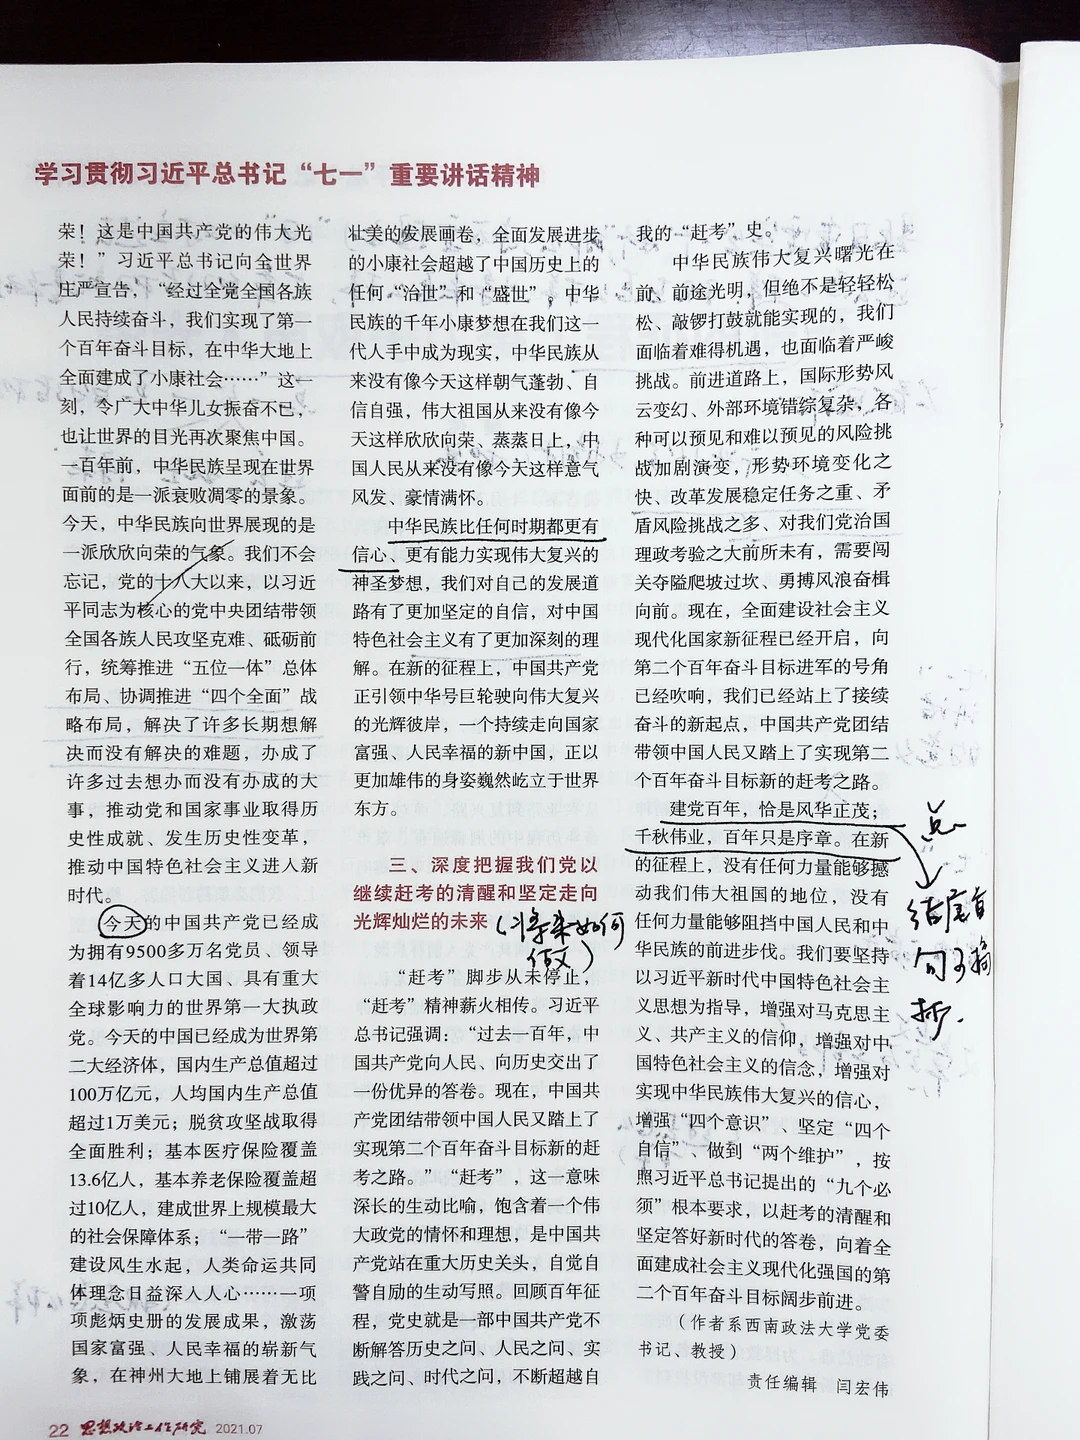 学习贯彻习近平总书记“七一”重要讲话精神
荣！这是中国共产党的伟大光
荣！”习近平总书记向全世界
庄严宣告，“经过全党全国各族
人民持续奋斗，我们实现了第一
个百年奋斗目标，在中华大地上
全面建成了小康社会……”这一
刻，令广大中华儿女振奋不已，
也让世界的目光再次聚焦中国。
一百年前，中华民族呈现在世界
面前的是一派衰败凋零的景象。
今天，中华民族向世界展现的是
一派欣欣向荣的气象。我们不会
忘记，党的十八大以来，以习近
平同志为核心的党中央团结带领
全国各族人民攻坚克难、砥砺前
行，统筹推进“五位一体”总体
布局、协调推进“四个全面”战
略布局，解决了许多长期想解
决而没有解决的难题，办成了
许多过去想办而没有办成的大
事，推动党和国家事业取得历
史性成就、发生历史性变革，
推动中国特色社会主义进入新
时代。
今天的中国共产党已经成
为拥有9500多万名党员、领导
着14亿多人口大国、具有重大
全球影响力的世界第一大执政
党。今天的中国已经成为世界第
二大经济体，国内生产总值超过
100万亿元，人均国内生产总值
超过1万美元；脱贫攻坚战取得
全面胜利；基本医疗保险覆盖
13.6亿人，基本养老保险覆盖超
过10亿人，建成世界上规模最大
的社会保障体系；“一带一路”
建设风生水起，人类命运共同
体理念日益深入人心……一项
项彪炳史册的发展成果，激荡
国家富强、人民幸福的崭新气
象，在神州大地上铺展着无比
壮美的发展画卷，全面发展进步
的小康社会超越了中国历史上的
任何“治世”和“盛世”，中华
民族的千年小康梦想在我们这一
代人手中成为现实，中华民族从
来没有像今天这样朝气蓬勃、自
信自强，伟大祖国从来没有像今
天这样欣欣向荣、蒸蒸日上，中
国人民从来没有像今天这样意气
风发、豪情满怀。
中华民族比任何时期都更有
信心、更有能力实现伟大复兴的
神圣梦想，我们对自己的发展道
路有了更加坚定的自信，对中国
特色社会主义有了更加深刻的理
解。在新的征程上，中国共产党
正引领中华号巨轮驶向伟大复兴
的光辉彼岸，一个持续走向国家
富强、人民幸福的新中国，正以
更加雄伟的身姿巍然屹立于世界
东方。
三、深度把握我们党以
继续赶考的清醒和坚定走向
光辉灿烂的未来（将来如何
做）
“赶考”脚步从未停止，
“赶考”精神薪火相传。习近平
总书记强调：“过去一百年，中
国共产党向人民、向历史交出了
一份优异的答卷。现在，中国共
产党团结带领中国人民又踏上了
实现第二个百年奋斗目标新的赶
考之路。”“赶考”，这一意味
深长的生动比喻，饱含着一个伟
大政党的情怀和理想，是中国共
产党站在重大历史关头，自觉自
警自励的生动写照。回顾百年征
程，党史就是一部中国共产党不
断解答历史之问、人民之问、实
践之问、时代之问，不断超越自
我的“赶考”史。
中华民族伟大复兴曙光在
前、前途光明，但绝不是轻轻松
松、敲锣打鼓就能实现的，我们
面临着难得机遇，也面临着严峻
挑战。前进道路上，国际形势风
云变幻、外部环境错综复杂，各
种可以预见和难以预见的风险挑
战加剧演变，形势环境变化之
快、改革发展稳定任务之重、矛
盾风险挑战之多、对我们党治国
理政考验之大前所未有，需要闯
关夺隘爬坡过坎、勇搏风浪奋楫
向前。现在，全面建设社会主义
现代化国家新征程已经开启，向
第二个百年奋斗目标进军的号角
已经吹响，我们已经站上了接续
奋斗的新起点，中国共产党团结
带领中国人民又踏上了实现第二
个百年奋斗目标新的赶考之路。
建党百年，恰是风华正茂；
千秋伟业，百年只是序章。在新
的征程上，没有任何力量能够撼
动我们伟大祖国的地位，没有
任何力量能够阻挡中国人民和中
华民族的前进步伐。我们要坚持
以习近平新时代中国特色社会主
义思想为指导，增强对马克思主
义、共产主义的信仰，增强对中
国特色社会主义的信念，增强对
实现中华民族伟大复兴的信心，
增强“四个意识”、坚定“四个
自信”、做到“两个维护”，按
照习近平总书记提出的“九个必
须”根本要求，以赶考的清醒和
坚定答好新时代的答卷，向着全
面建成社会主义现代化强国的第
二个百年奋斗目标阔步前进。
（作者系西南政法大学党委
书记、教授）
责任编辑 闫宏伟
结尾首
句可摘
抄.
22 思想政治工作研究 2021.07